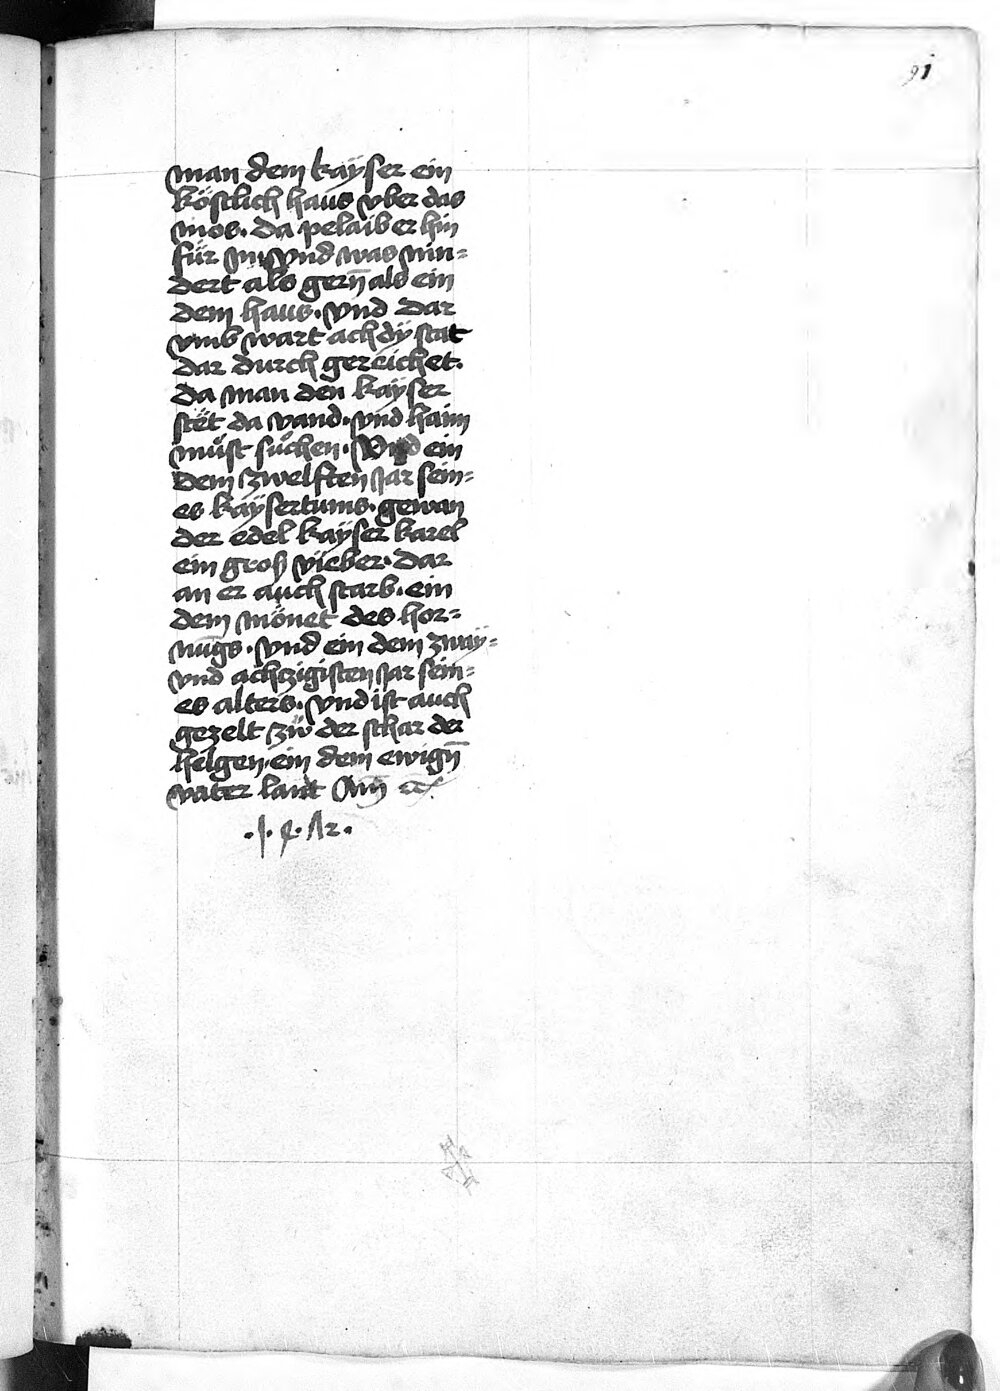 91
man dem kaÿser ein
köstlich haus vber das
mos. da pelaib er hin
für in vnd was nin=
dert als gern̄ als ein
dem haus. vnd dar
vmb wart ach dÿ stat
dar durch gereichet.
da man den kaÿser
stët da vand. vnd haim
můst sůchen. Vnd ein
dem zwelften jar sein=
es kaÿsertums. gewan
der edel kaÿser karel
ein groß vieber. dar
an er auch starb. ein
dem mönet des hor=
nūgs. vnd ein dem zwaÿ=
vnd achzigisten jar sein=
es alters. vnd ist auch
gezelt zů der schar der
helgen. ein dem ewign̄
vater lant Am̄